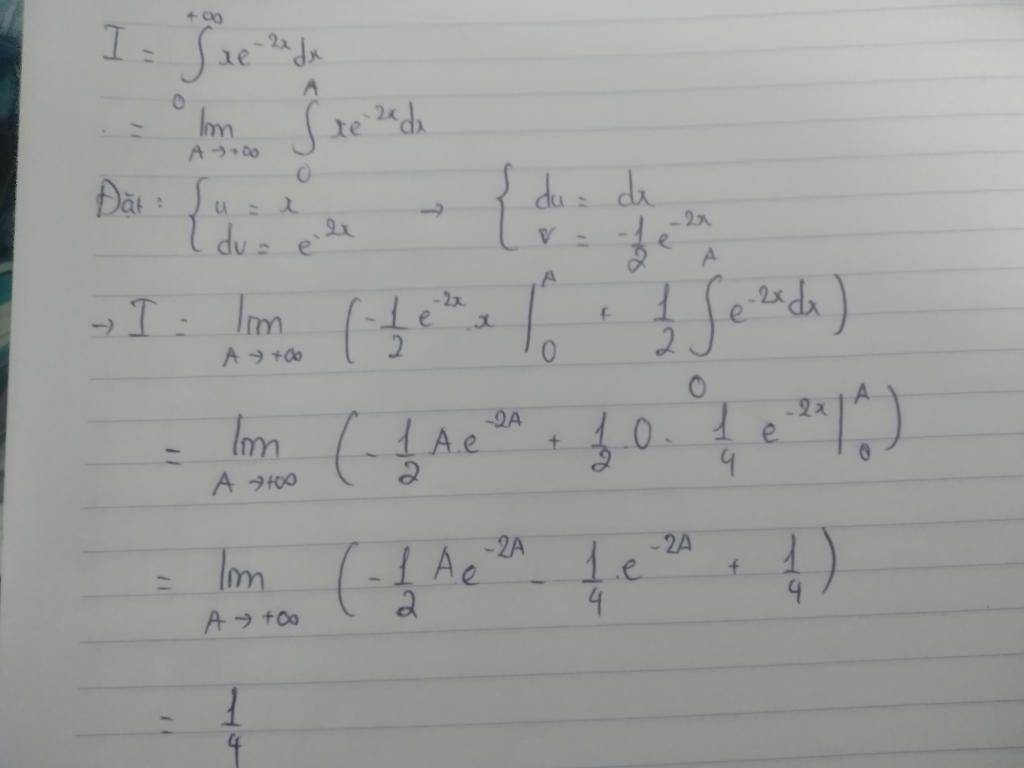 I = ∫₀^{+∞} xe^{-2x} dx
= lim_{A→+∞} ∫₀^A xe^{-2x} dx
Đặt: { u = x ; dv = e^{-2x} → { du = dx ; v = -1/2 e^{-2x}
→ I = lim_{A→+∞} ( -1/2 e^{-2x} . x |₀^A + 1/2 ∫₀^A e^{-2x} dx )
= lim_{A→+∞} ( -1/2 A.e^{-2A} + 1/2 . 0 - 1/4 e^{-2x} |₀^A )
= lim_{A→+∞} ( -1/2 Ae^{-2A} - 1/4 . e^{-2A} + 1/4 )
= 1/4